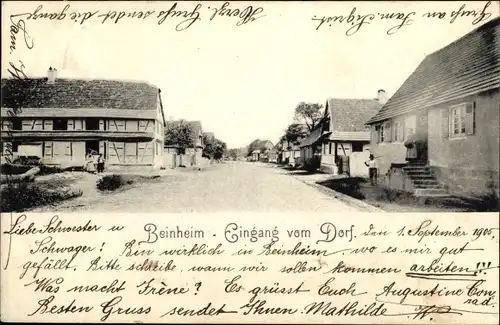 Gruss sendet die ganz
Fam.
Herzl. Gruss sendet
Gruss an Fam.
Liebe Schwester u
Beinheim - Eingang vom Dorf.
den 1. September 1905.
Schwager! Bin wirklich in Beinheim wo es mir gut
gefällt. Bitte schreibe wann wir sollen kommen arbeiten!!!
Was macht Irène? Es grüsst Euch Augustine Con
rad.
Besten Gruss sendet Ihnen Mathilde W.